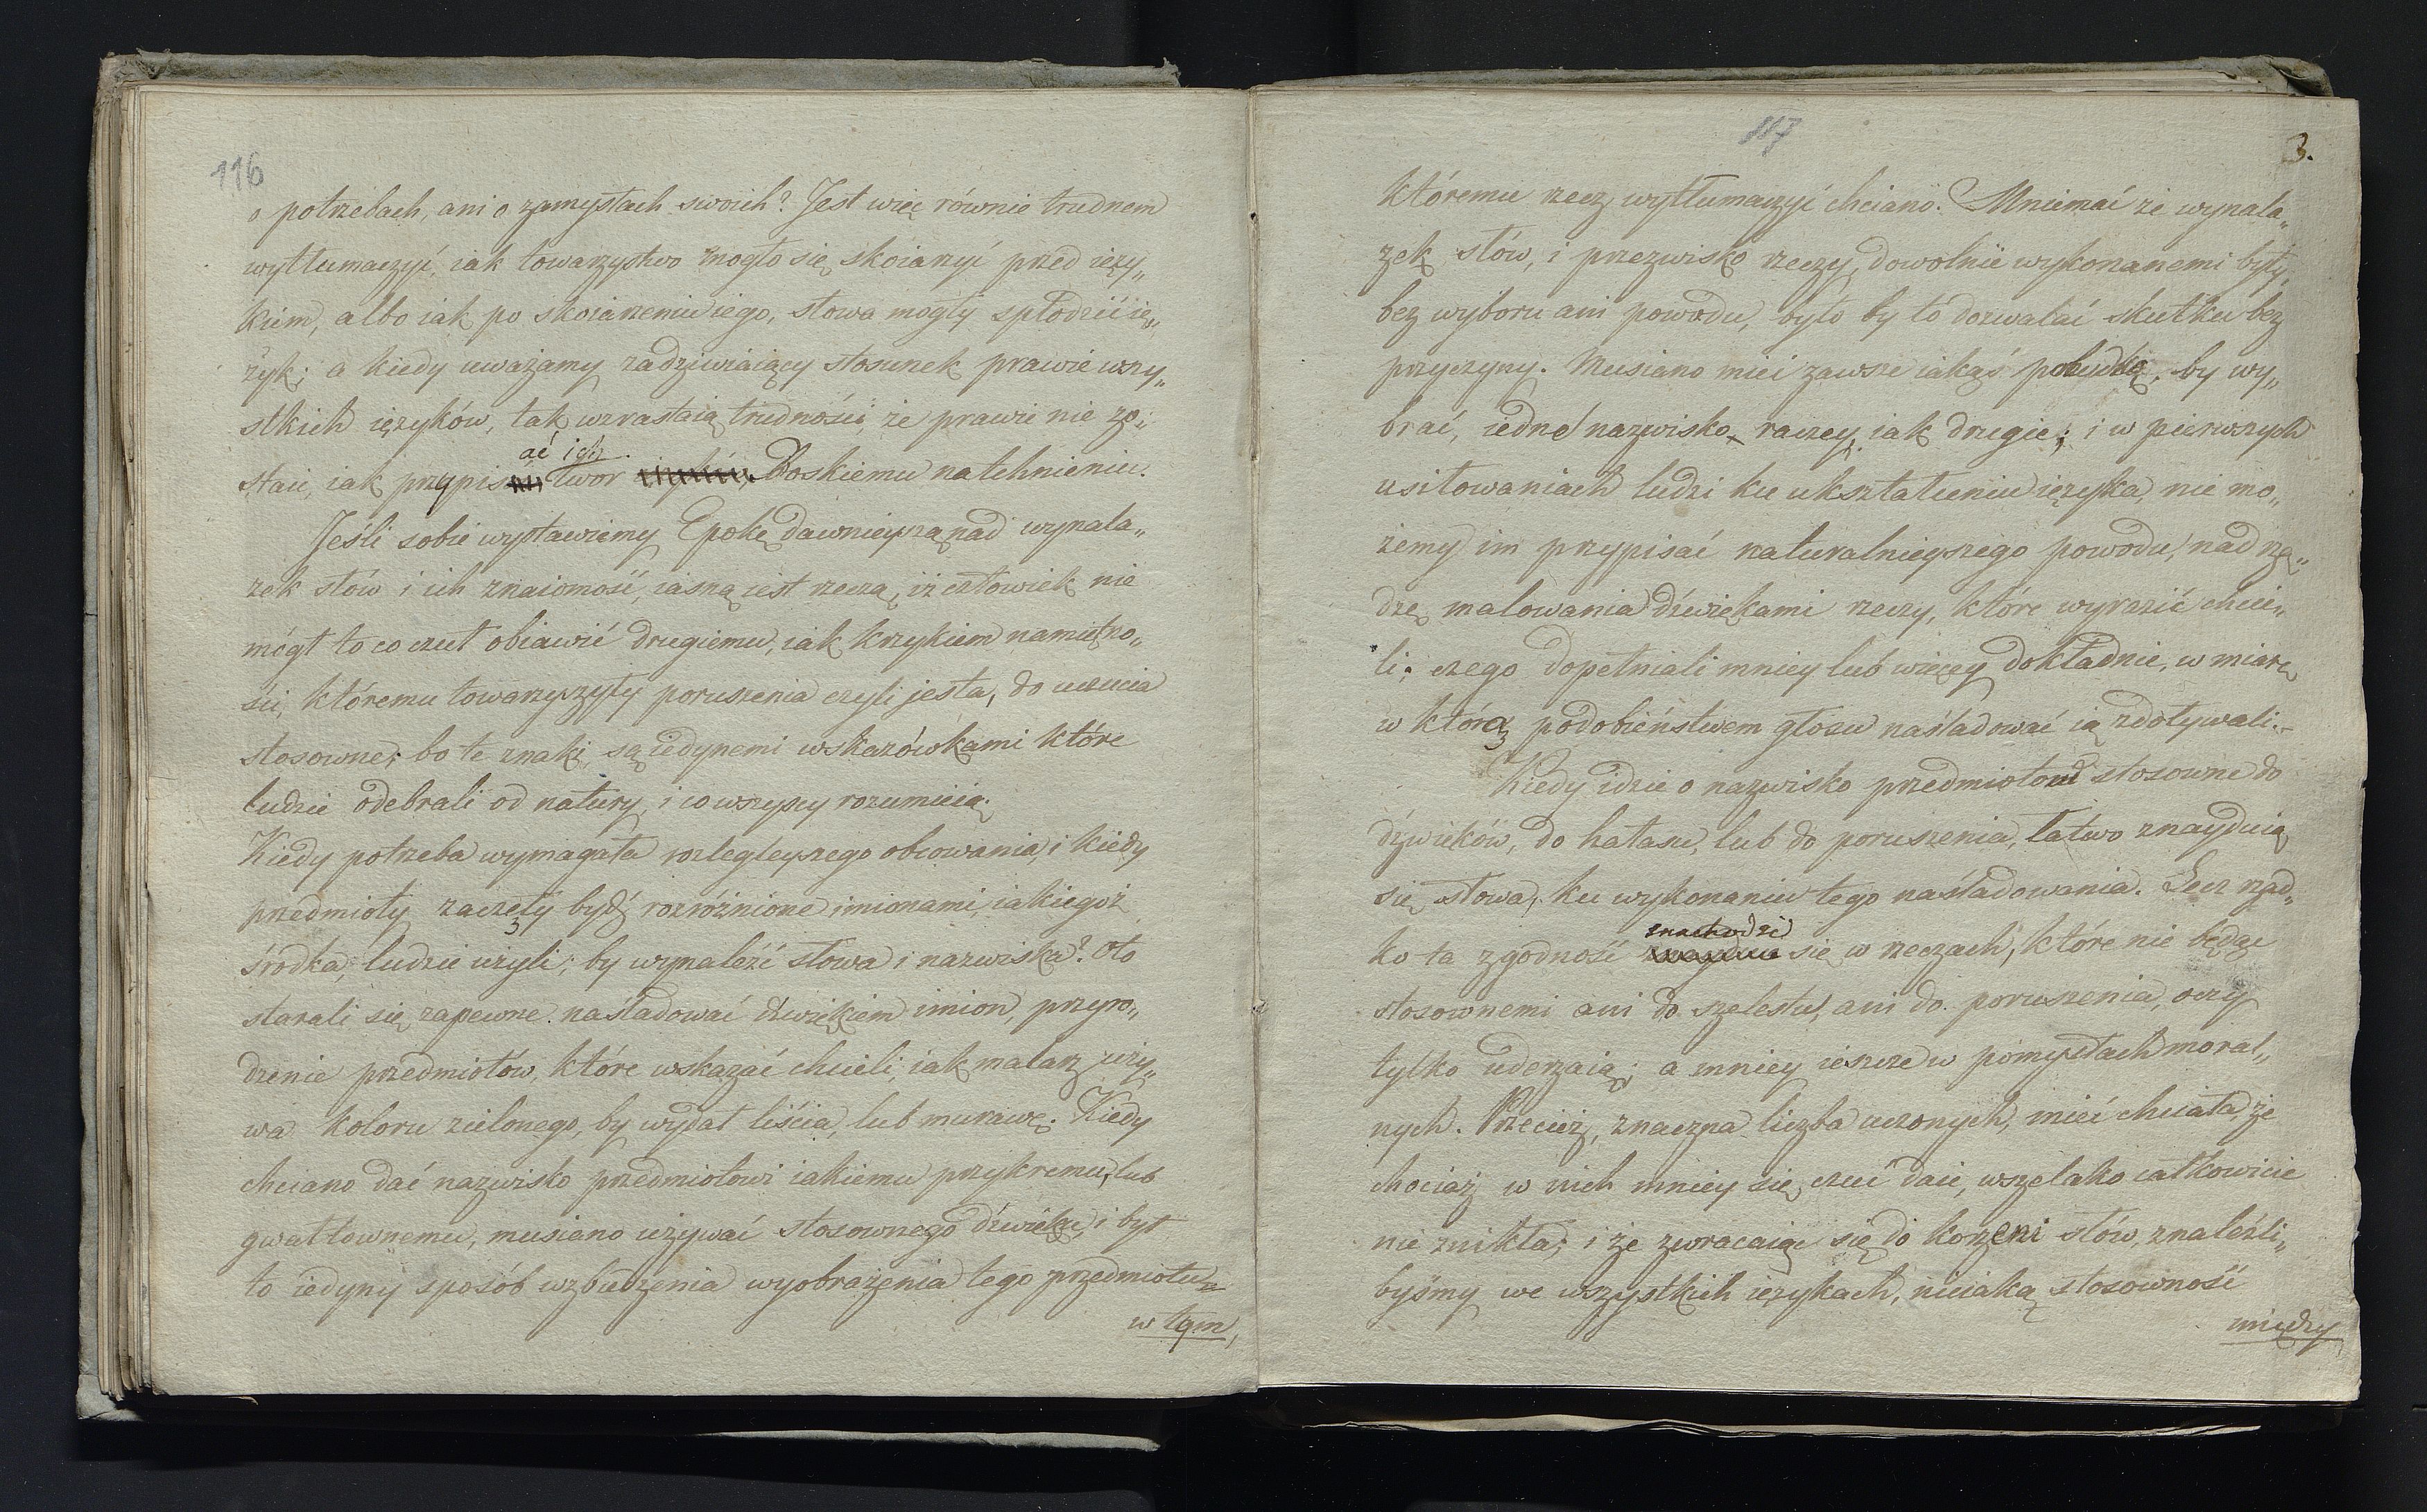 116
o potrzebach, ani o zamysłach swoich? Jest więc równie trudnem
wytłumaczyć, iak towarzystwo mogło się skoiarzyć przed ięzy„
kiem, albo iak po skoiarzeniu iego, słowa mogły spłodzić ię„
zyk; a kiedy uważamy zadziwiaiący stosunek prawie wszy„
stkich ięzyków, tak wzrastaią trudności, że prawie nie zo„
ać ich
staie, iak przypis twor Boskiemu natchnieniu.
Jeśli sobie wystawiemy Epokę dawnieyszą nad wynala„
zek słów i ich znaiomość, iasną iest rzeczą, iż człowiek nie
mógł to co czuł obiawić drugiemu, iak krzykiem namiętno„
ści, któremu towarzyszyły poruszenia czyli jesta, do uczucia
stosowne; bo te znaki, są iedynemi wskazówkami które
ludzie odebrali od natury, i co wszyscy rozumieią.
Kiedy potrzeba wymagała rozlegleyszego obcowania, i kiedy
przedmioty zaczęły bydź rozróżnione imionami, iakiegoż
środka, ludzie użyli, by wynaleźć słowa i nazwiska? Oto
starali się zapewne naśladować dźwiękiem imion, przyro„
dzenie przedmiotów, które wskazać chcieli, iak malarz uży„
wa koloru zielonego, by wydał liścia, lub murawę. Kiedy
chciano dać nazwisko przedmiotowi iakiemu przykremu, lub
gwałtownemu, musiano używać stosownego dźwięku, i był
to iedyny sposób wzbudzenia wyobrażenia tego przedmiotu
w tym,
117
3.
któremu rzecz wytłumaczyć chciano. Mniemać że wynala„
zek słów, i przezwisko rzeczy, dowolnie wykonanemi były,
bez wyboru ani powodu, było by to dozwalać skutku bez
przyczyny. Musiano mieć zawsze iakąś pobudkę, by wy„
brać, iedne nazwisko raczey, iak drugie; i w pierwszych
usiłowaniach ludzi ku ukształceniu ięzyka, nie mo„
żemy im przypisać naturalnieyszego powodu, nad żą„
dzę malowania dźwiękami rzeczy, które wyrazić chcie„
li; czego dopełniali mniey lub więcey dokładnie, w miarę
w którą podobieństwem głosu naśladować ią zdoływali.
Kiedy idzie o nazwisko przedmiotów stosowne do
dźwięków, do hałasu, lub do poruszenia, łatwo znayduią
się słowa, ku wykonaniu tego naśladowania. Lecz rzad„
znachodzi
ko ta zgodność znayduie się w rzeczach, które nie będąc
stosownemi ani do szelestu, ani do poruszenia, oczy
tylko uderzaią; a mniey ieszcze w pomysłach moral„
nych. Przecież, znaczna liczba uczonych, mieć chciała, że
chociaż w nich mniey się czuć daie, wszelako całkowicie
nie znikła; i że zwracaiąc się do korzeni słów, znaleźli„
byśmy we wszystkich ięzykach, nieiaką stosowność
między